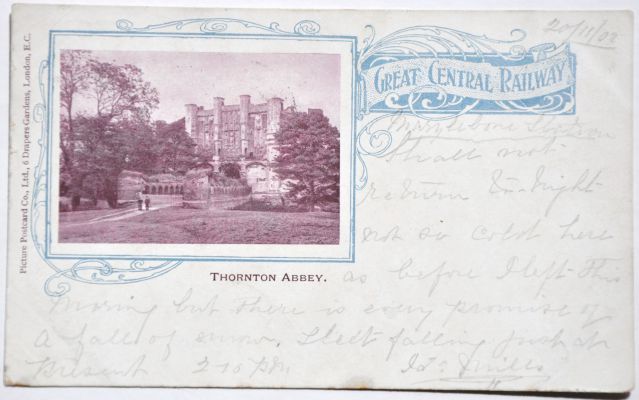 Picture Postcard Co., Ltd., 6 Drapers Gardens, London, E.C.
20/11/02
GREAT CENTRAL RAILWAY
Marylebone Station
Shall not
return to-night
not so cold here
THORNTON ABBEY.
as before I left this
Moring but there is every promise of
a fall of snow. Sleet falling just at
Present 2-10 PM Jas Mills